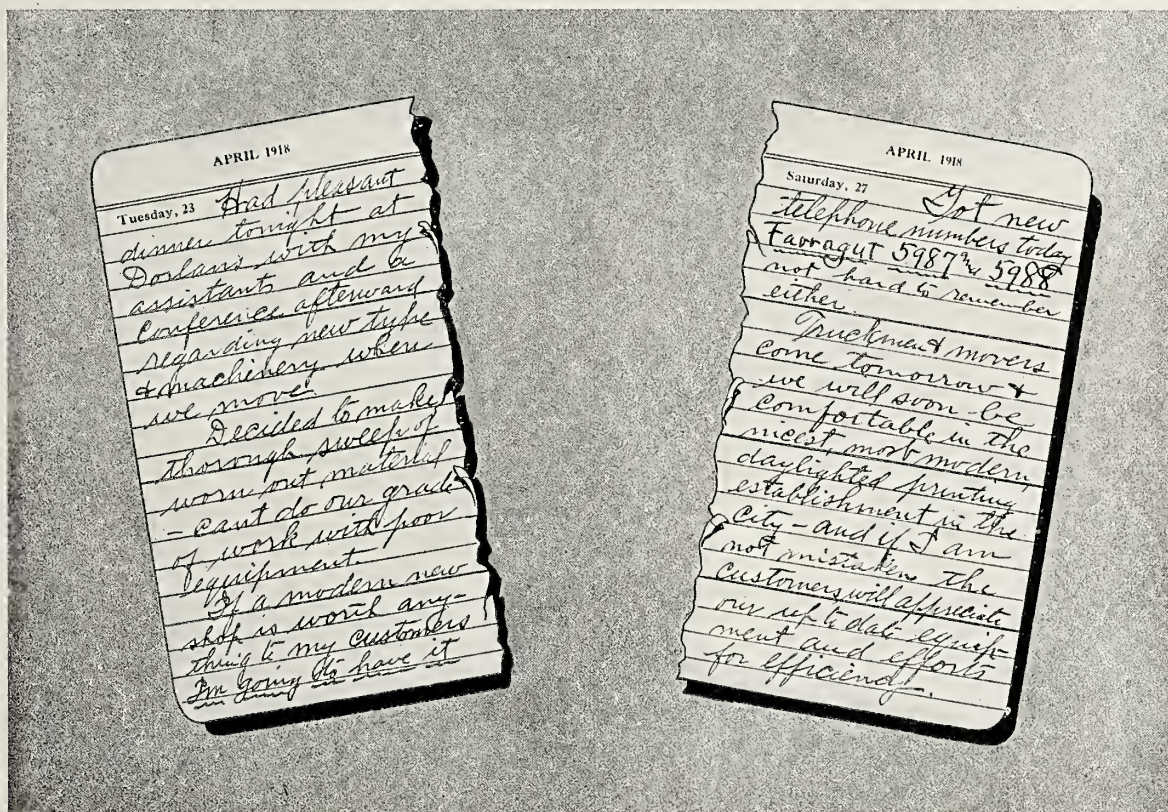 APRIL 1918
Tuesday, 23 Had pleasant
dinner tonight at
Dorlans with my
assistants and a
conference afterward
regarding new type
& machinery when
we move
Decided to make
thorough sweep of
worn out material
- cant do our grade
of work with poor
equipment.
If a modern new
shop is worth any-
thing to my customers
I'm going to have it
APRIL 1918
Saturday, 27 Got new
telephone numbers today
Farragut 5987 and 5988
not hard to remember
either.
Truckmen & movers
come tomorrow &
we will soon be
comfortable in the
nicest, most modern,
daylighted printing
establishment in the
city - and if I am
not mistaken the
customers will appreciate
our up to date equip-
ment and efforts
for efficiency.